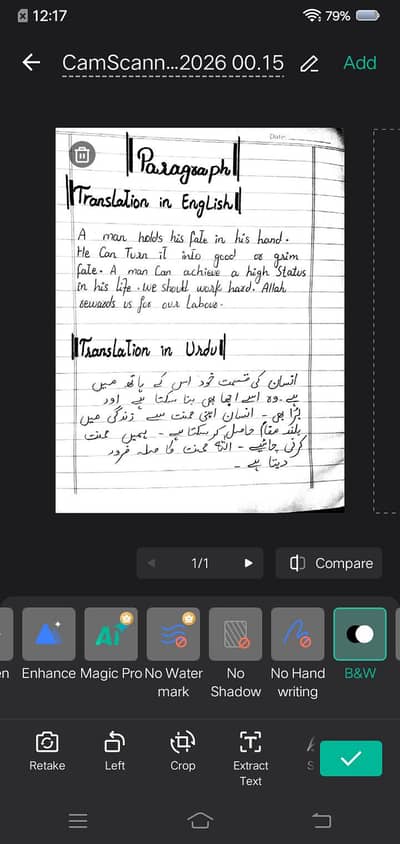 12:17
79%
CamScann...2026 00.15
Add
Date
Paragraph
Translation in English
A man holds his fate in his hand.
He Can Turn it into good or grim
fate. A man Can achieve a high Status
in his life. We should work hard. Allah
rewards us for our Labour.
Translation in Urdu
انسان کی قسمت خود اس کے ہاتھ میں
ہے۔ وہ اسے اچھا بھی بنا سکتا ہے اور
بُرا بھی ۔ انسان اپنی محنت سے زندگی میں
بلند مقام حاصل کر سکتا ہے ۔ ہمیں محنت
کرنی چاہیے ۔ اللہ محنت کا صلہ ضرور
دیتا ہے ۔
1/1
Compare
en
Enhance
Magic Pro
No Water
mark
No
Shadow
No Hand
writing
B&W
Retake
Left
Crop
Extract
Text
S